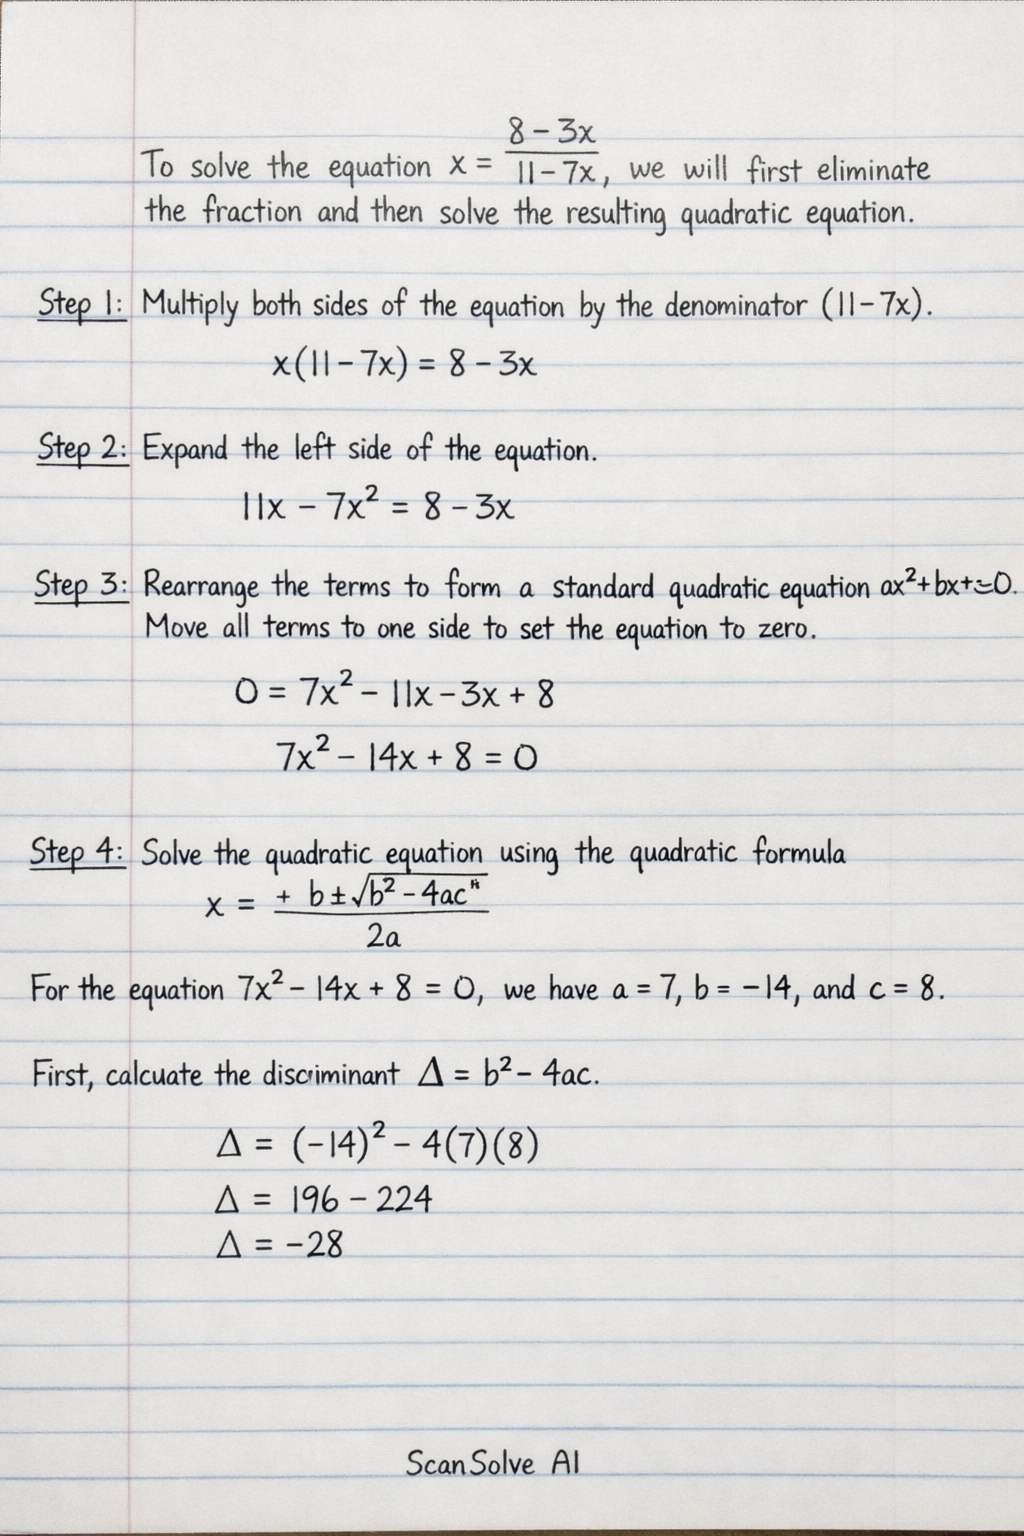 To solve the equation x = (8 - 3x)/(11 - 7x), we will first eliminate
the fraction and then solve the resulting quadratic equation.
Step 1: Multiply both sides of the equation by the denominator (11 - 7x).
x(11 - 7x) = 8 - 3x
Step 2: Expand the left side of the equation.
11x - 7x² = 8 - 3x
Step 3: Rearrange the terms to form a standard quadratic equation ax²+bx+=0.
Move all terms to one side to set the equation to zero.
0 = 7x² - 11x - 3x + 8
7x² - 14x + 8 = 0
Step 4: Solve the quadratic equation using the quadratic formula
x = (+ b ± √(b² - 4ac))/2a
For the equation 7x² - 14x + 8 = 0, we have a = 7, b = -14, and c = 8.
First, calcuate the discriminant Δ = b² - 4ac.
Δ = (-14)² - 4(7)(8)
Δ = 196 - 224
Δ = -28
ScanSolve AI